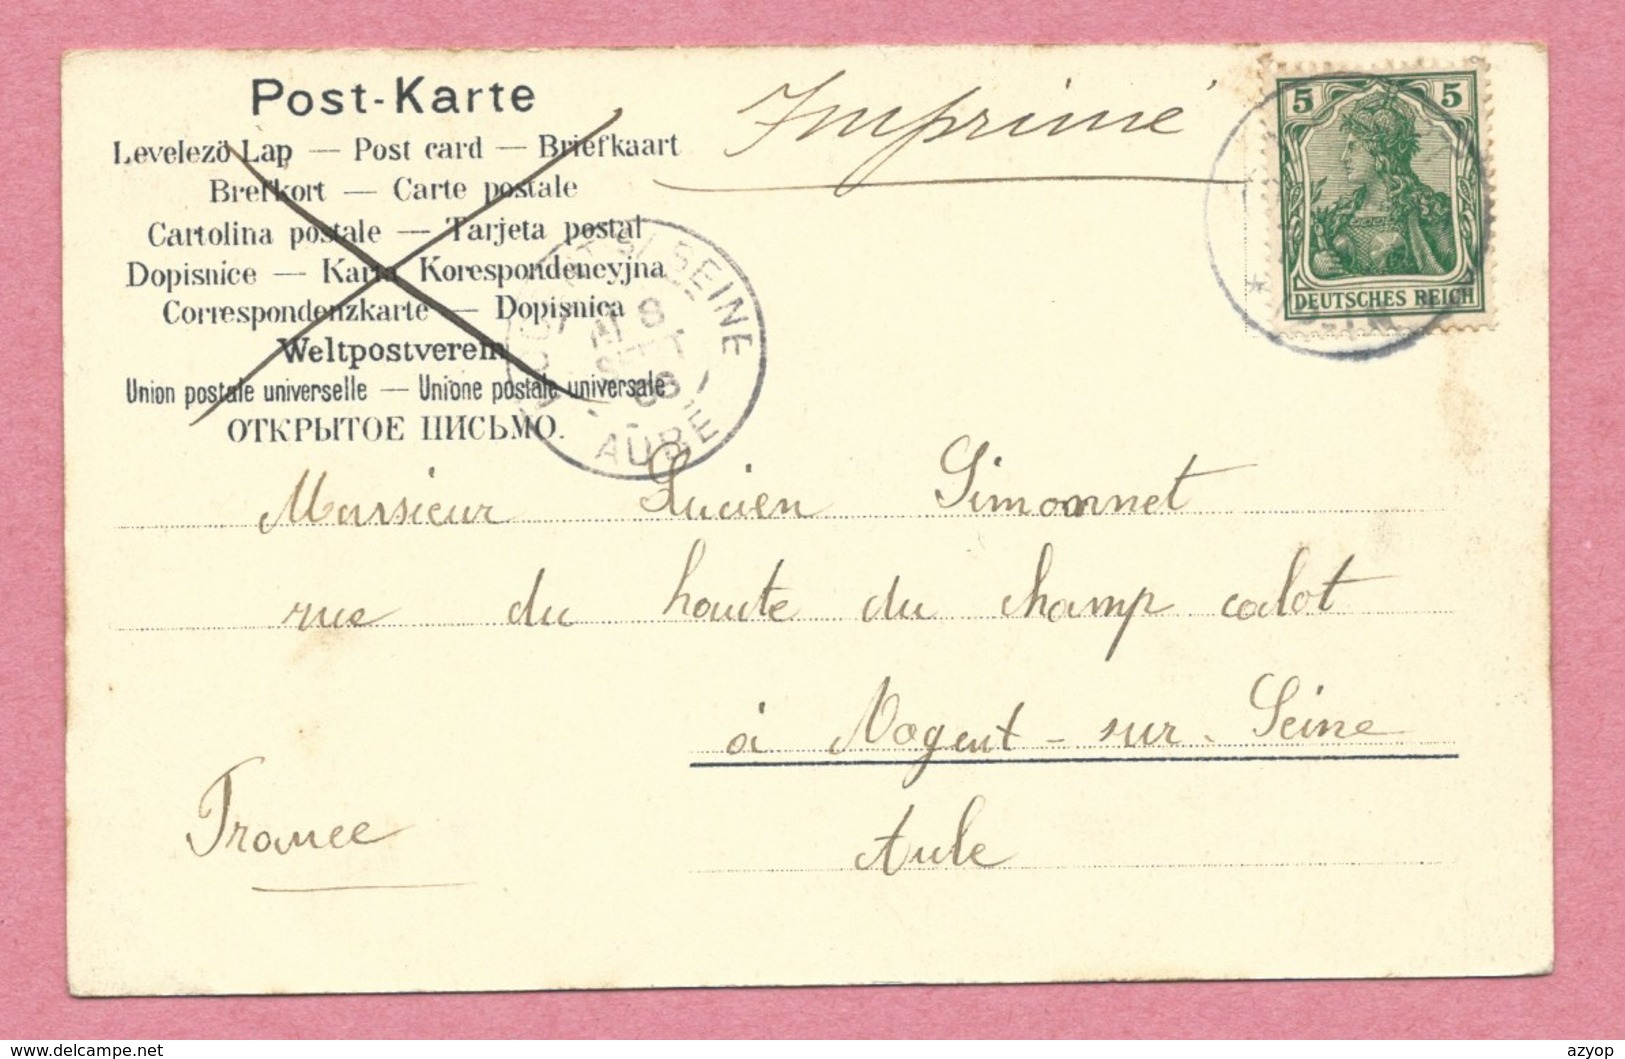 Post-Karte
Levelezö Lap — Post card — Briefkaart
Brefkort — Carte postale
Cartolina postale — Tarjeta postal
Dopisnice — Karta Korespondencyjna
Correspondenzkarte — Dopisnica
Weltpostverein
Union postale universelle — Unione postale universale
ОТКРЫТОЕ ПИСЬМО.
Imprimé
5 5
DEUTSCHES REICH
NOGENT S/ SEINE
8
SEPT
AUBE
Monsieur Lucien Simonnet
rue du haute du champ calot
à Nogent-sur-Seine
Aube
France
delcampe.net
azyop